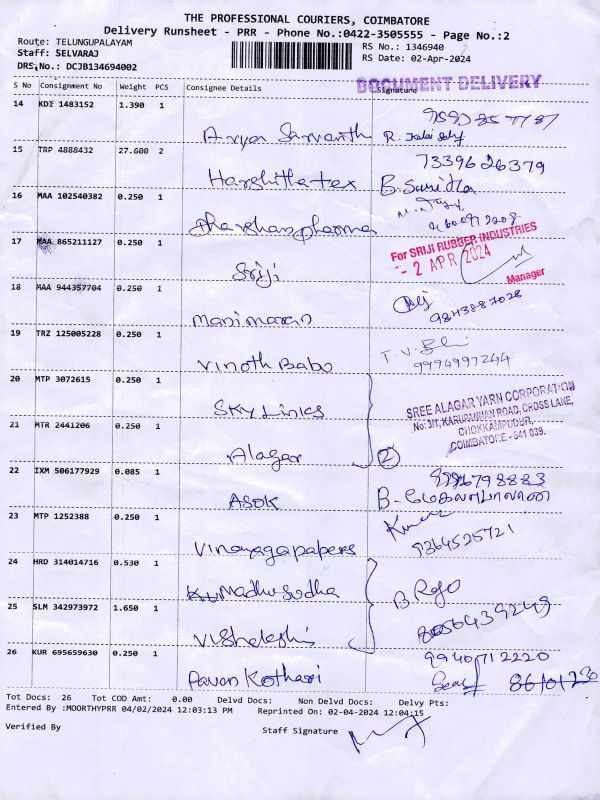 THE PROFESSIONAL COURIERS, COIMBATORE
Delivery Runsheet - PRR - Phone No.:0422-3505555 - Page No.:2
Route: TELUNGUPALAYAM
Staff: SELVARAJ
DRS No.: DCJB134694002
RS No.: 1346940
RS Date: 02-Apr-2024
DOCUMENT DELIVERY
S No Consignment No Weight PCS Consignee Details Signature
14 KDI 1483152 1.390 1
15 TRP 4888432 27.600 2
7339626379
Harshitha tex B. Sunitha
16 MAA 102540382 0.250 1
Dharshan pharma
17 MAA 865211127 0.250 1
For SRIJI RUBBER INDUSTRIES
- 2 APR 2024
Manager
Sriji
18 MAA 944357704 0.250 1
9843887028
Manimaran
19 TRZ 125005228 0.250 1
Vinoth Babu
9994997244
20 MTP 3072615 0.250 1
Sky Links
SREE ALAGAR YARN CORPORATION
No: 3/1, KARUPANNAN ROAD, CROSS LANE,
CHOKKAMPUDUR,
COIMBATORE - 641 039.
21 MTR 2441206 0.250 1
Alagar 2
22 IXM 506177929 0.085 1
Asok
23 MTP 1252388 0.250 1
Kumar
9364525721
Vinayagapapers
24 HRD 314014716 0.530 1
Madhu Sudha
B Rajo
25 SLM 342973972 1.650 1
26 KUR 695659630 0.250 1
9940712220
Pavan Kothari
Tot Docs: 26 Tot COD Amt: 0.00 Delvd Docs: Non Delvd Docs: Delvy Pts:
Entered By :MOORTHYPRR 04/02/2024 12:03:13 PM Reprinted On: 02-04-2024 12:04:15
Verified By Staff Signature